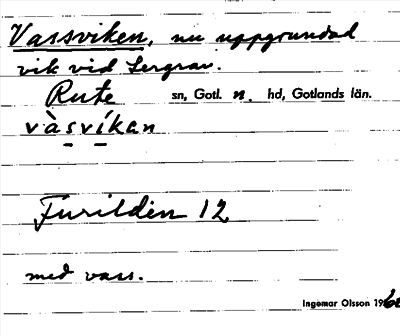 Vassviken, nu uppgrundad
vik vid Lergrav.
Rute sn, Gotl. n. hd, Gotlands län.
vàsvíkan
Furilden 12
med vass.
Ingemar Olsson 196